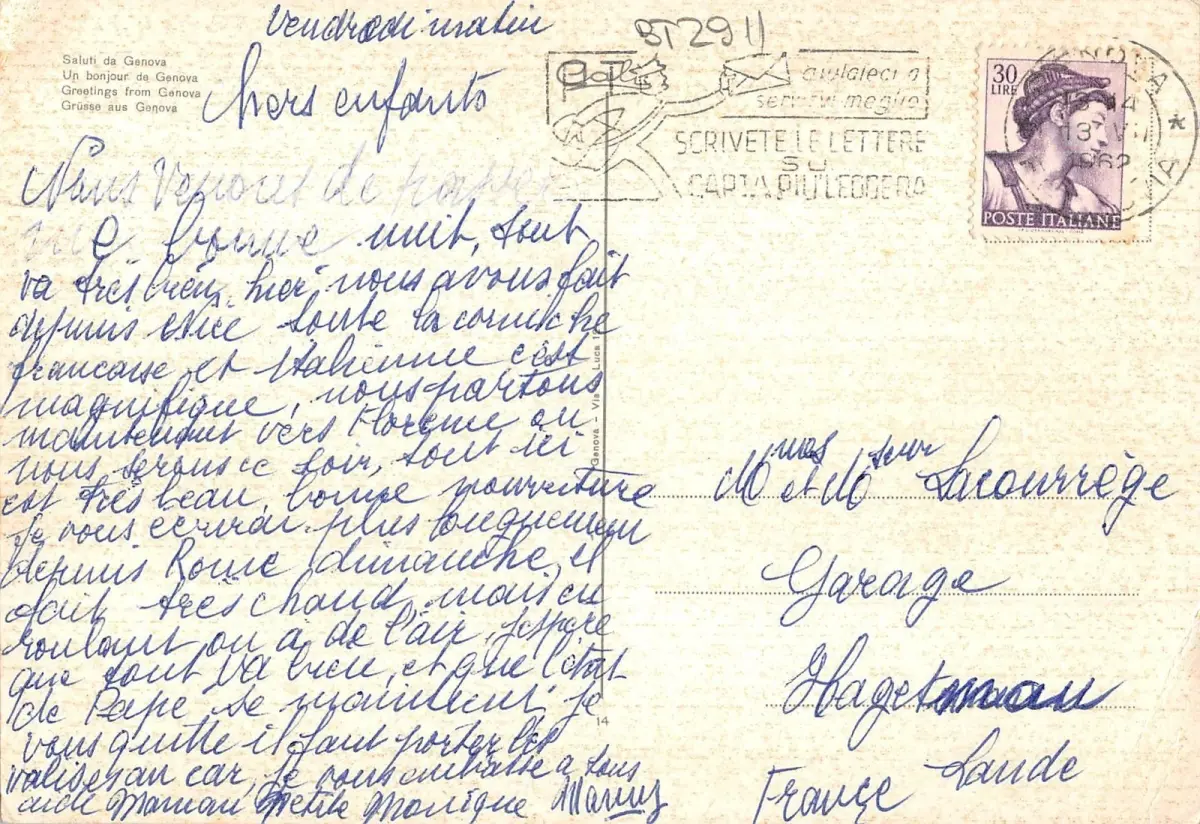 Vendredi matin
BT2911
Saluti da Genova
Un bonjour de Genova
Greetings from Genova
Grüsse aus Genova
Chers enfants
SCRIVETE LE LETTERE
SU
CARTA PIU' LEGGERA
30
LIRE
13 VII
1962
POSTE ITALIANE
Nous Venons de passer
une bonne nuit, tout
va très bien, hier nous avons fait
depuis Nice toute la corniche
francaise et Italienne c'est
magnifique, nous partons
maintenant vers Florence ou
nous serons ce soir, tout ici
est très beau, bonne nourriture
Je vous écrirai plus longuement
depuis Rome dimanche, il
fait très chaud mais en
roulant on a de l'air, j'espère
que tout va bien, et que l'état
de Pape se maintient, je
vous quitte il faut porter les
valises au car, je vous embrasse a tous
Maman Petite Monique
Genova - Via Luca
14
M et Mme Lacourrège
Garage
Hagetmau
Lande
France